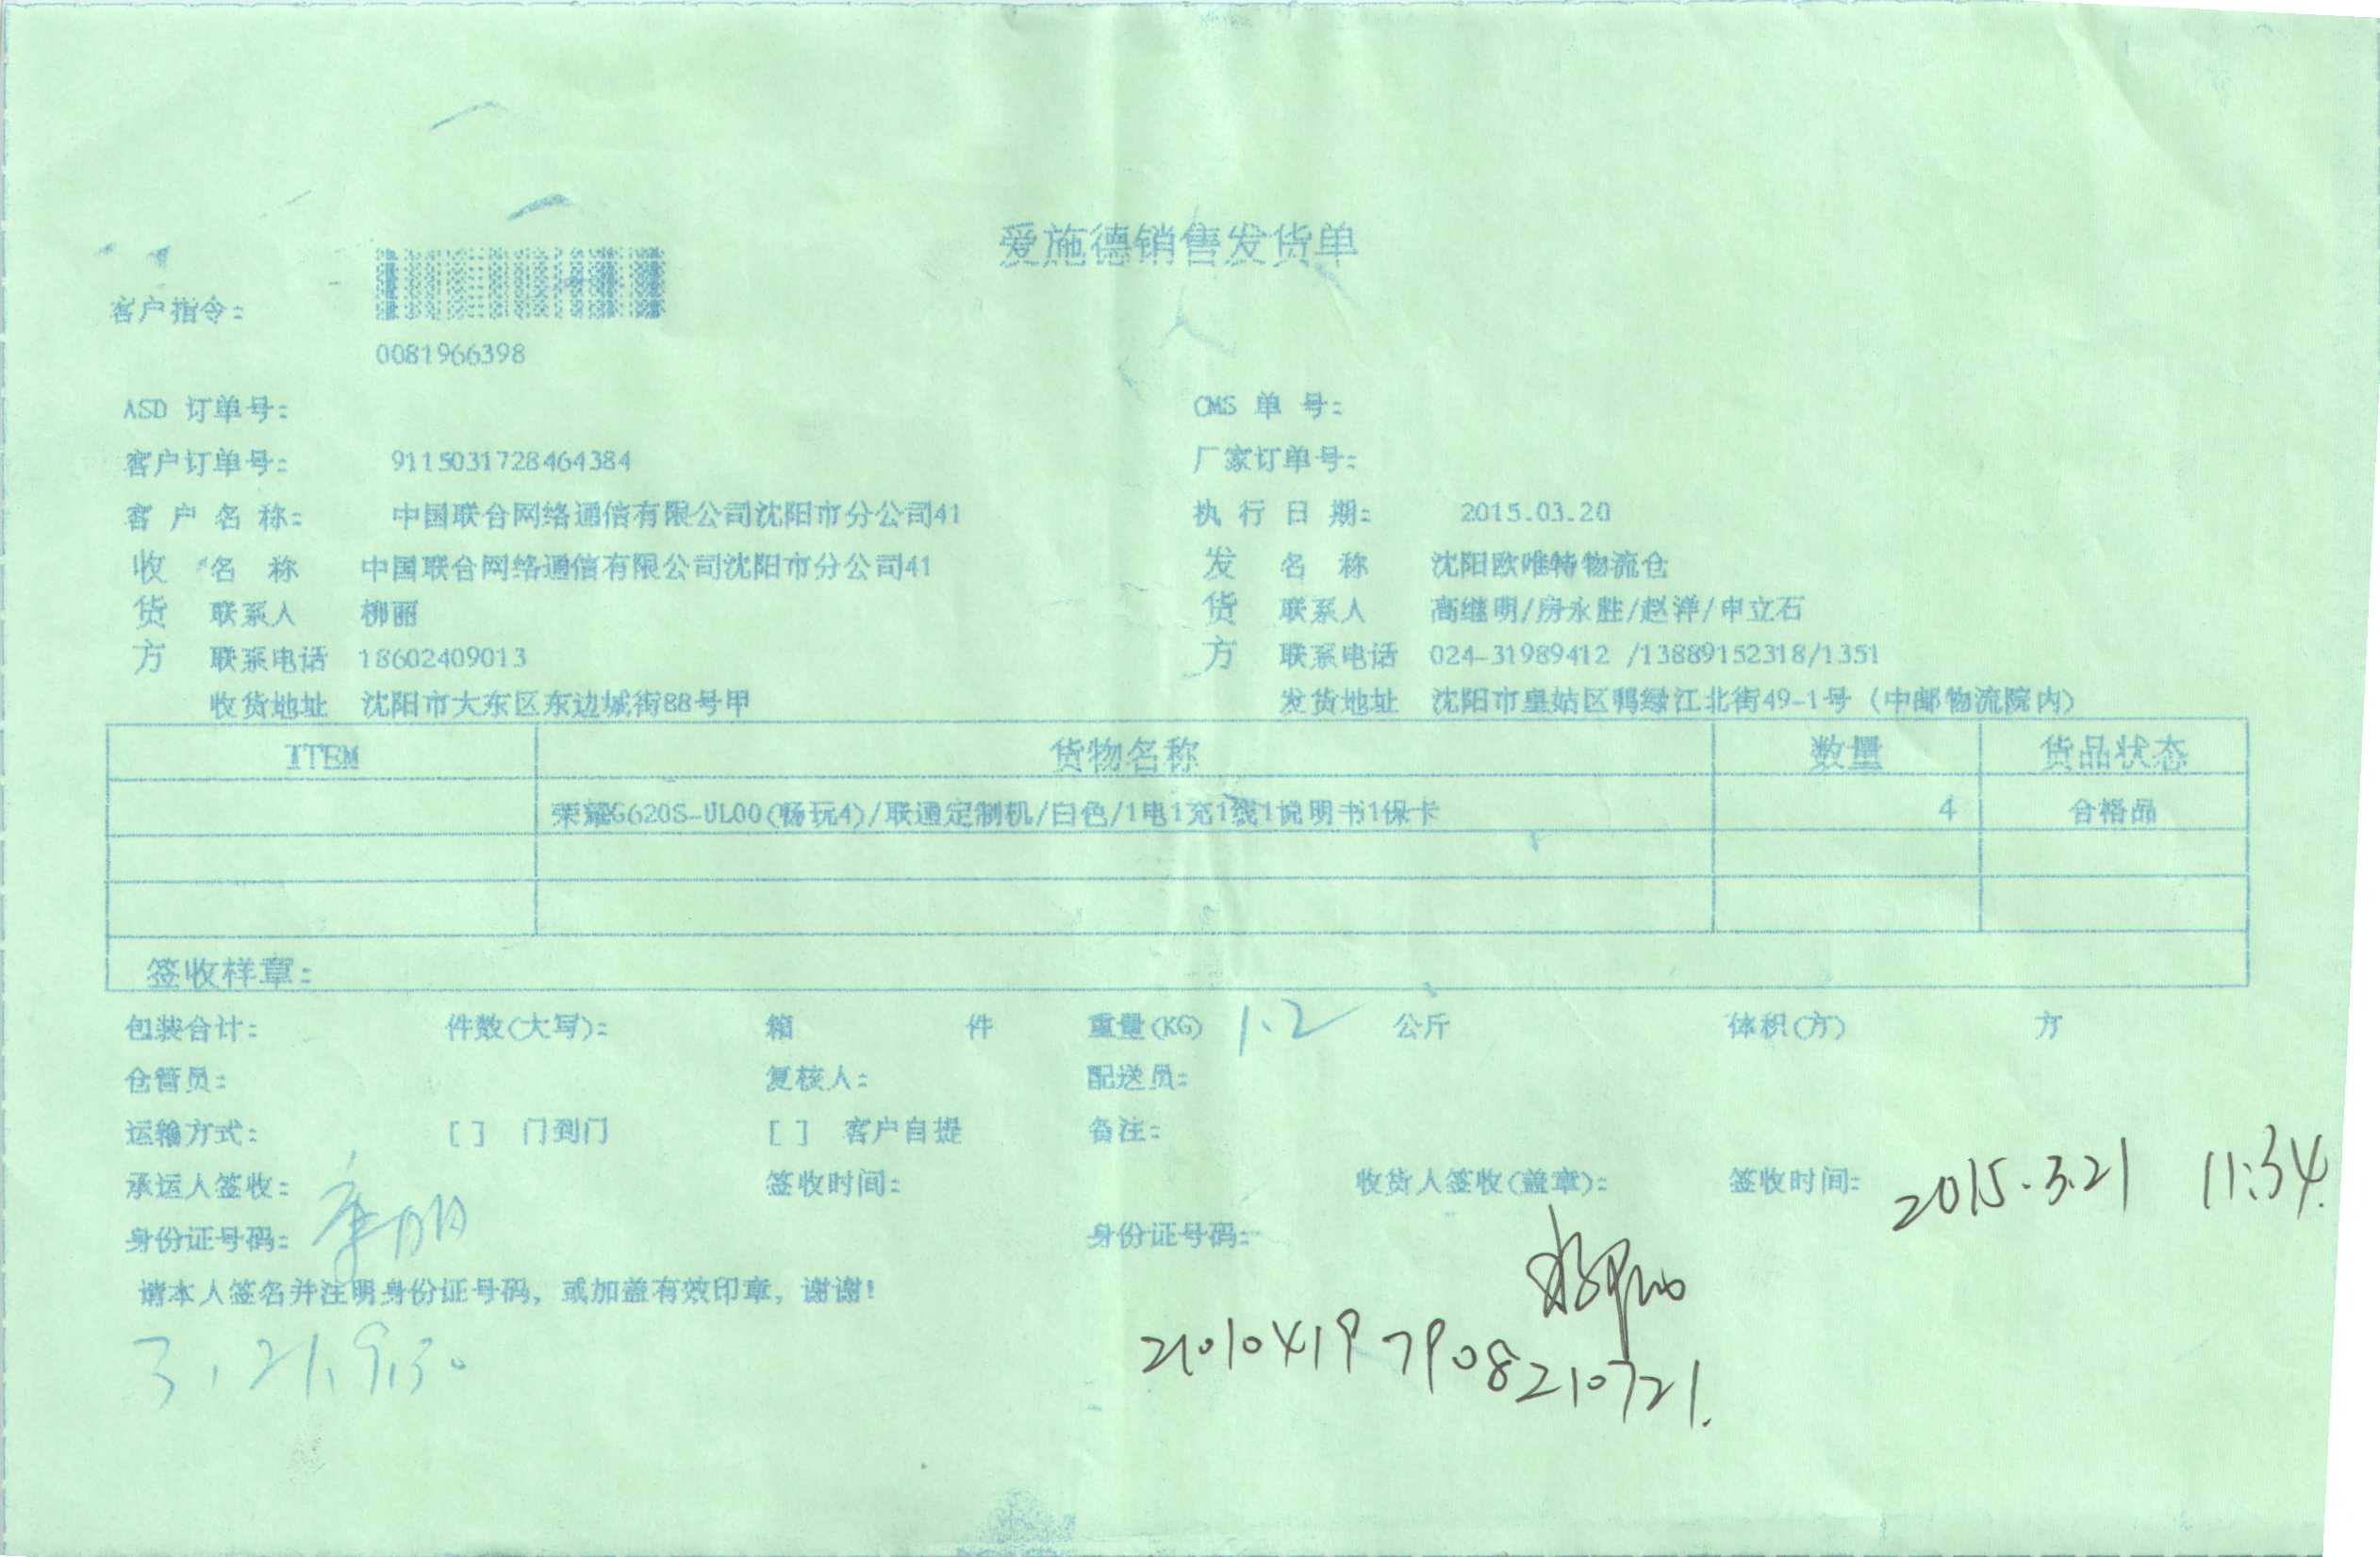 爱施德销售发货单
客户指令:
0081966398
ASD 订单号: CMS 单 号:
客户订单号: 9115031728464384 厂家订单号:
客 户 名 称: 中国联合网络通信有限公司沈阳市分公司41 执 行 日 期: 2015.03.20
收 名 称 中国联合网络通信有限公司沈阳市分公司41 发 名 称 沈阳欧唯特物流仓
货 联系人 柳丽 货 联系人 高继明/房永胜/赵洋/申立石
方 联系电话 18602409013 方 联系电话 024-31989412 /13889152318/1351
收货地址 沈阳市大东区东边城街88号甲 发货地址 沈阳市皇姑区鸭绿江北街49-1号 (中邮物流院内)
ITEM 货物名称 数量 货品状态
荣耀G620S-UL00(畅玩4)/联通定制机/白色/1电1充1线1说明书1保卡 4 合格品
签收样章:
包装合计: 件数(大写): 箱 件 重量(KG) 1.2 公斤 体积(方) 方
仓管员: 复核人: 配送员:
运输方式: [ ] 门到门 [ ] 客户自提 备注:
承运人签收: 签收时间: 收货人签收(盖章): 签收时间: 2015.3.21 11:34.
身份证号码: 身份证号码:
请本人签名并注明身份证号码, 或加盖有效印章, 谢谢!
3.21.9.30
210104197908210721.